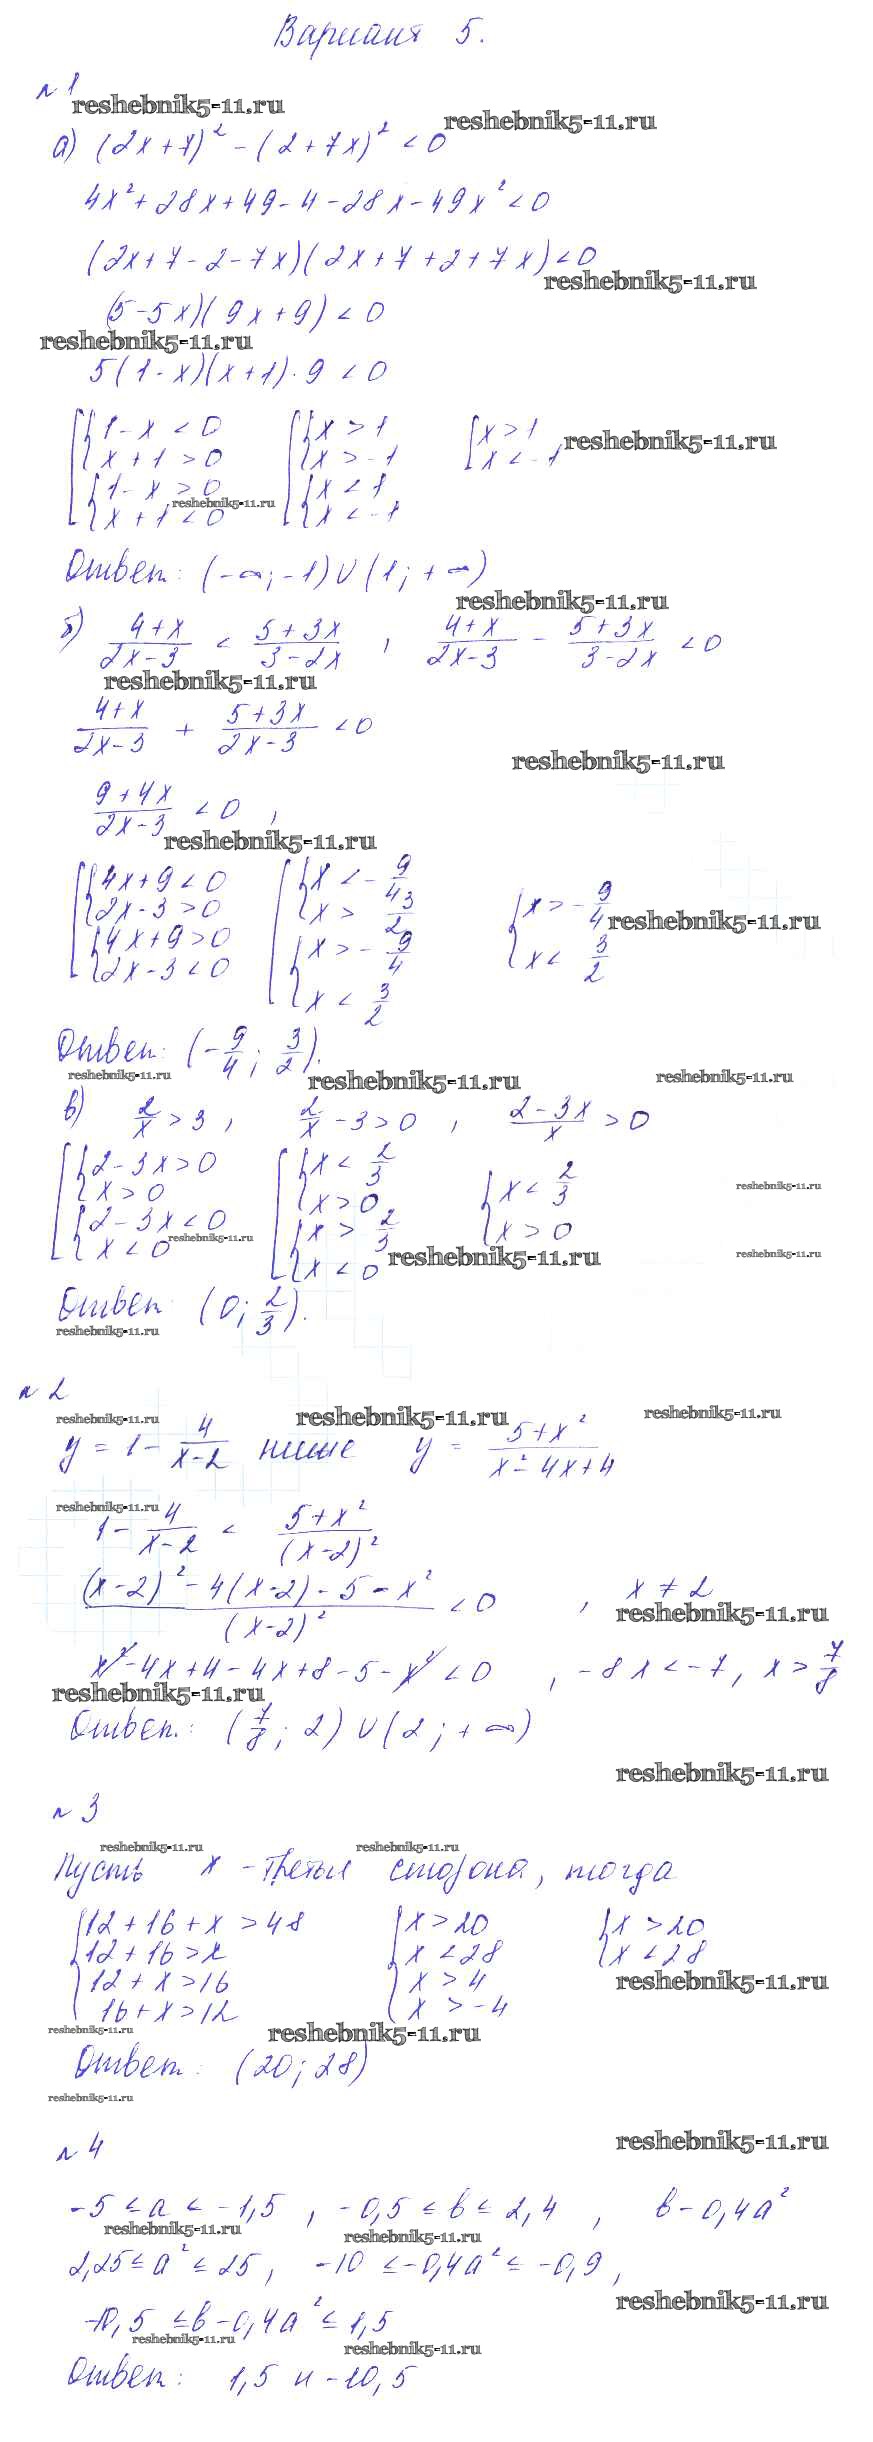 Вариант 5.
№1
reshebnik5-11.ru
reshebnik5-11.ru
а) (2x+7)² - (2+7x)² < 0
4x² + 28x + 49 - 4 - 28x - 49x² < 0
(2x+7-2-7x)(2x+7+2+7x) < 0
reshebnik5-11.ru
(5-5x)(9x+9) < 0
reshebnik5-11.ru
5(1-x)(x+1)·9 < 0
[ { 1-x < 0 [ { x > 1 [ x > 1
{ x+1 > 0 { x > -1 x < -1 reshebnik5-11.ru
{ 1-x > 0 { x < 1
reshebnik5-11.ru
{ x+1 < 0 { x < -1
Ответ: (-∞; -1) ∪ (1; +∞)
reshebnik5-11.ru
б) (4+x)/(2x-3) < (5+3x)/(3-2x) , (4+x)/(2x-3) - (5+3x)/(3-2x) < 0
reshebnik5-11.ru
(4+x)/(2x-3) + (5+3x)/(2x-3) < 0
reshebnik5-11.ru
(9+4x)/(2x-3) < 0 ,
reshebnik5-11.ru
[ { 4x+9 < 0 [ { x < -9/4 { x > -9/4
{ 2x-3 > 0 { x > 3/2 { x < 3/2 reshebnik5-11.ru
{ 4x+9 > 0 { x > -9/4
{ 2x-3 < 0 { x < 3/2
Ответ: (-9/4; 3/2).
reshebnik5-11.ru reshebnik5-11.ru reshebnik5-11.ru
в) 2/x > 3 , 2/x - 3 > 0 , (2-3x)/x > 0
[ { 2-3x > 0 [ { x < 2/3 { x < 2/3
{ x > 0 { x > 0 { x > 0 reshebnik5-11.ru
{ 2-3x < 0 { x > 2/3
reshebnik5-11.ru
{ x < 0 { x < 0 reshebnik5-11.ru reshebnik5-11.ru
Ответ: (0; 2/3).
reshebnik5-11.ru
№2
reshebnik5-11.ru reshebnik5-11.ru reshebnik5-11.ru
y = 1 - 4/(x-2) ниже y = (5+x²)/(x²-4x+4)
reshebnik5-11.ru
1 - 4/(x-2) < (5+x²)/(x-2)²
((x-2)² - 4(x-2) - 5 - x²)/(x-2)² < 0 , x ≠ 2
reshebnik5-11.ru
x² - 4x + 4 - 4x + 8 - 5 - x² < 0 , -8x < -7 , x > 7/8
reshebnik5-11.ru
Ответ: (7/8; 2) ∪ (2; +∞)
reshebnik5-11.ru
№3
reshebnik5-11.ru reshebnik5-11.ru
Пусть x - третья сторона, тогда
{ 12+16+x > 48 { x > 20 { x > 20
12+16 > x x < 28 x < 28
12+x > 16 x > 4 reshebnik5-11.ru
16+x > 12 x > -4
reshebnik5-11.ru reshebnik5-11.ru
Ответ: (20; 28)
reshebnik5-11.ru
№4
reshebnik5-11.ru
-5 ≤ a ≤ -1,5 , -0,5 ≤ b ≤ 2,4 , b - 0,4a²
reshebnik5-11.ru reshebnik5-11.ru
2,25 ≤ a² ≤ 25 , -10 ≤ -0,4a² ≤ -0,9 ,
reshebnik5-11.ru
-10,5 ≤ b - 0,4a² ≤ 1,5
reshebnik5-11.ru reshebnik5-11.ru
Ответ: 1,5 и -10,5